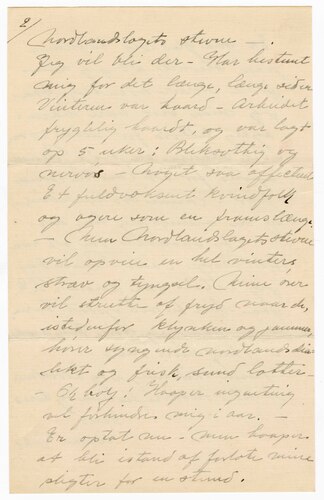 2/
Nordlandslagets stevne —
Jeg vil bli der — Har bestemt
mig for det længe, længe siden
Vinteren var haard — Arbeidet
frygtelig haardt, og var lagt
op 5 uker: Bleksottig og
nervøs — Noget saa
Et fuldvoksent kvindfolk
og agere som en
— Men Nordlandslagets stevne
vil opveie en hel vinters
stræv og tyngsel. Mine ører
vil strutte af fryd naar de,
istedenfor klynken og jammer,
hører syngende nordlands dia-
lekt og frisk, sund latter —
Haaper ingenting
vil forhindre mig i aar. —
Er optat nu — men haaper
at bli istand at forlate mine
pligter for en stund.